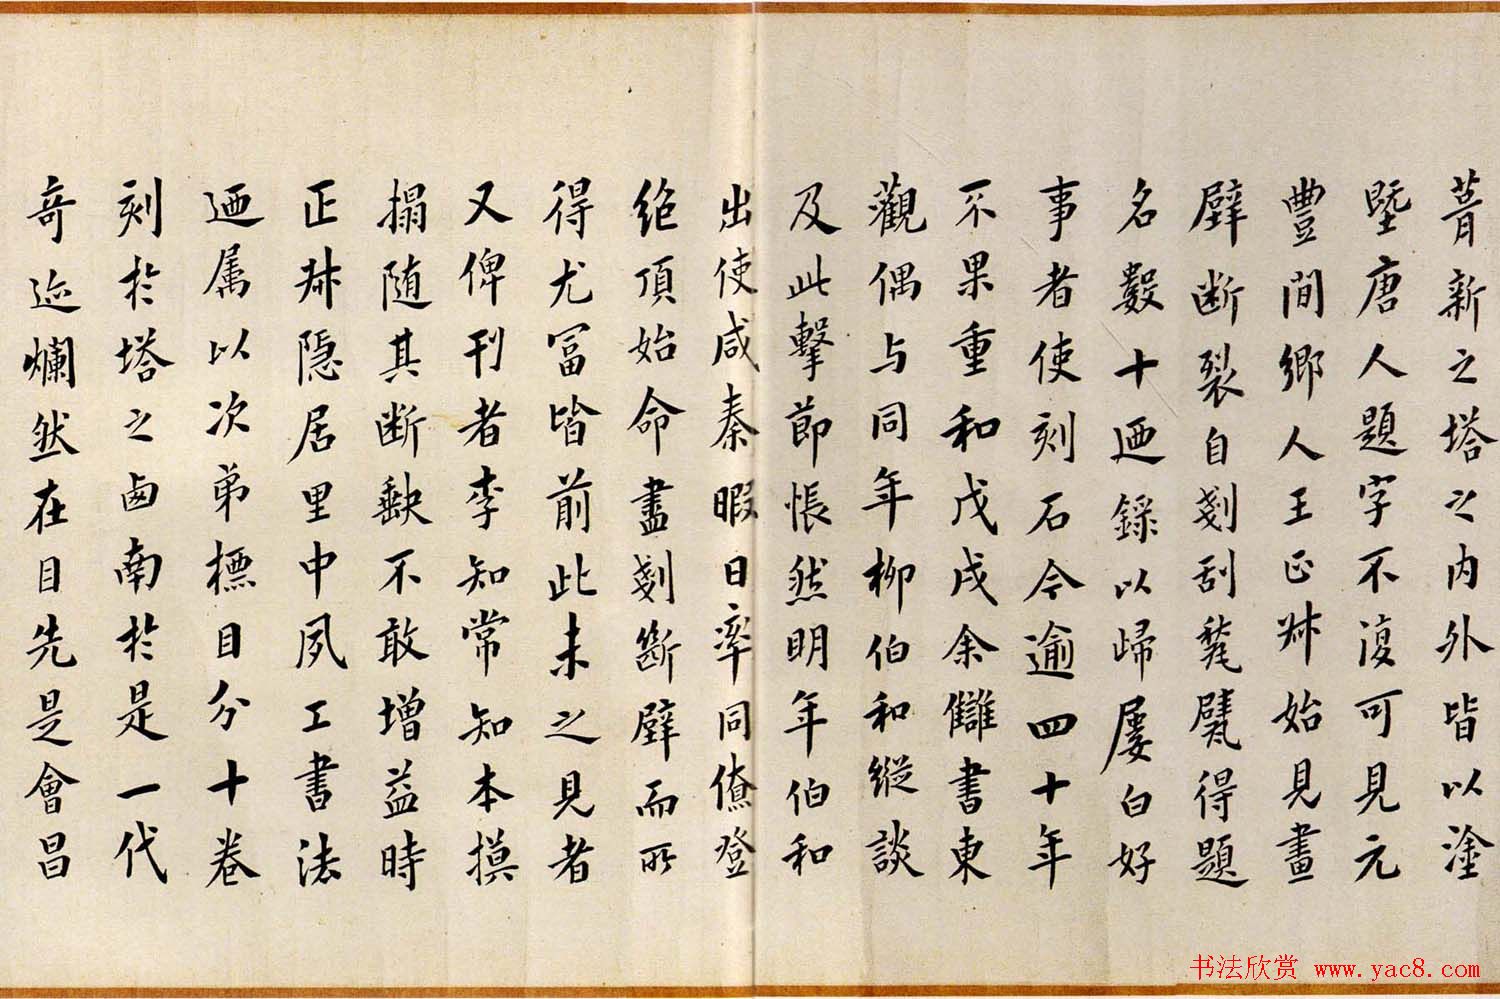 葺新之塔之内外皆以塗
塈唐人題字不復可見元
豐間鄉人王正叔始見畫
壁断裂自剗刮甃甓得題
名數十迺錄以歸屢白好
事者使刻石今逾四十年
不果重和戊戌余讎書東
觀偶与同年柳伯和縱談
及此擊節悵然明年伯和
出使咸秦暇日率同僚登
絶頂始命盡剗斷壁而所
得尤冨皆前此未之見者
又俾刊者李知常知本摸
搨随其断缺不敢增益時
正叔隠居里中夙工書法
迺属以次弟標目分十卷
刻於塔之西南於是一代
竒迹爛然在目先是會昌
书法欣赏 www.yac8.com